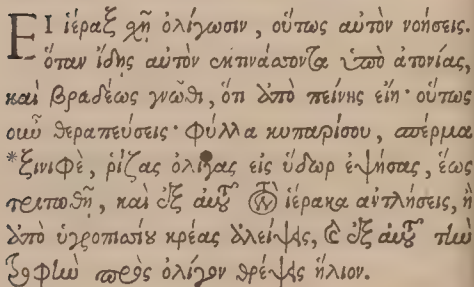 ΕΙ ἱέραξ χῇ ὀλίγωσιν, οὕτως αὐτὸν νοήσεις.
ὅταν ἴδῃς αὐτὸν ἐκπνάσσοντα ὑπὸ ἀτονίας,
καὶ βραδέως γνῶθι, ὅτι ἀπὸ πείνης εἴη· οὕτως
οὖν θεραπεύσεις· φύλλα κυπαρίσου, σπέρμα
*ξινιφὲ, ῥίζας ὀλίγας εἰς ὕδωρ ἑψήσας, ἕως
τριπωθῇ, καὶ ἐξ αὐτοῦ τὸν ἱέρακα ἀντλήσεις, ἢ
ἀπὸ ὑγροπισίου κρέας ἀλείψας, καὶ ἐξ αὐτοῦ τὴν
ζοφὴν πρὸς ὀλίγον θρέψας ἥλιον.